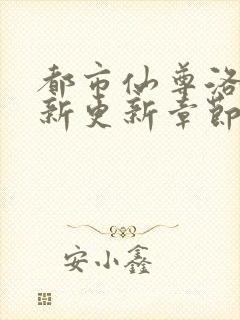 都市仙尊洛
新更新章節
安小鑫